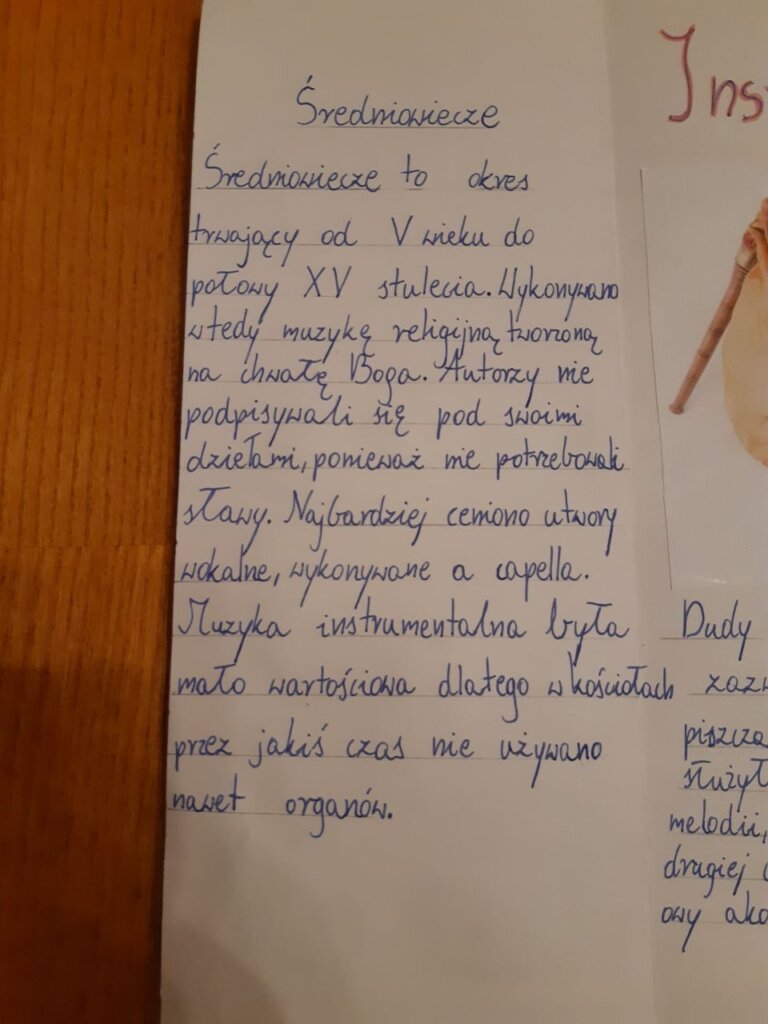 Średniowiecze
Średniowiecze to okres
trwający od V wieku do
połowy XV stulecia. Wykonywano
wtedy muzykę religijną tworzoną
na chwałę Boga. Autorzy nie
podpisywali się pod swoimi
dziełami, ponieważ nie potrzebowali
sławy. Najbardziej ceniono utwory
wokalne, wykonywane a capella.
Muzyka instrumentalna była
mało wartościowa dlatego w kościołach
przez jakiś czas nie używano
nawet organów.
Ins
Dudy
piszcza
służył
melodii,
drugiej
owy